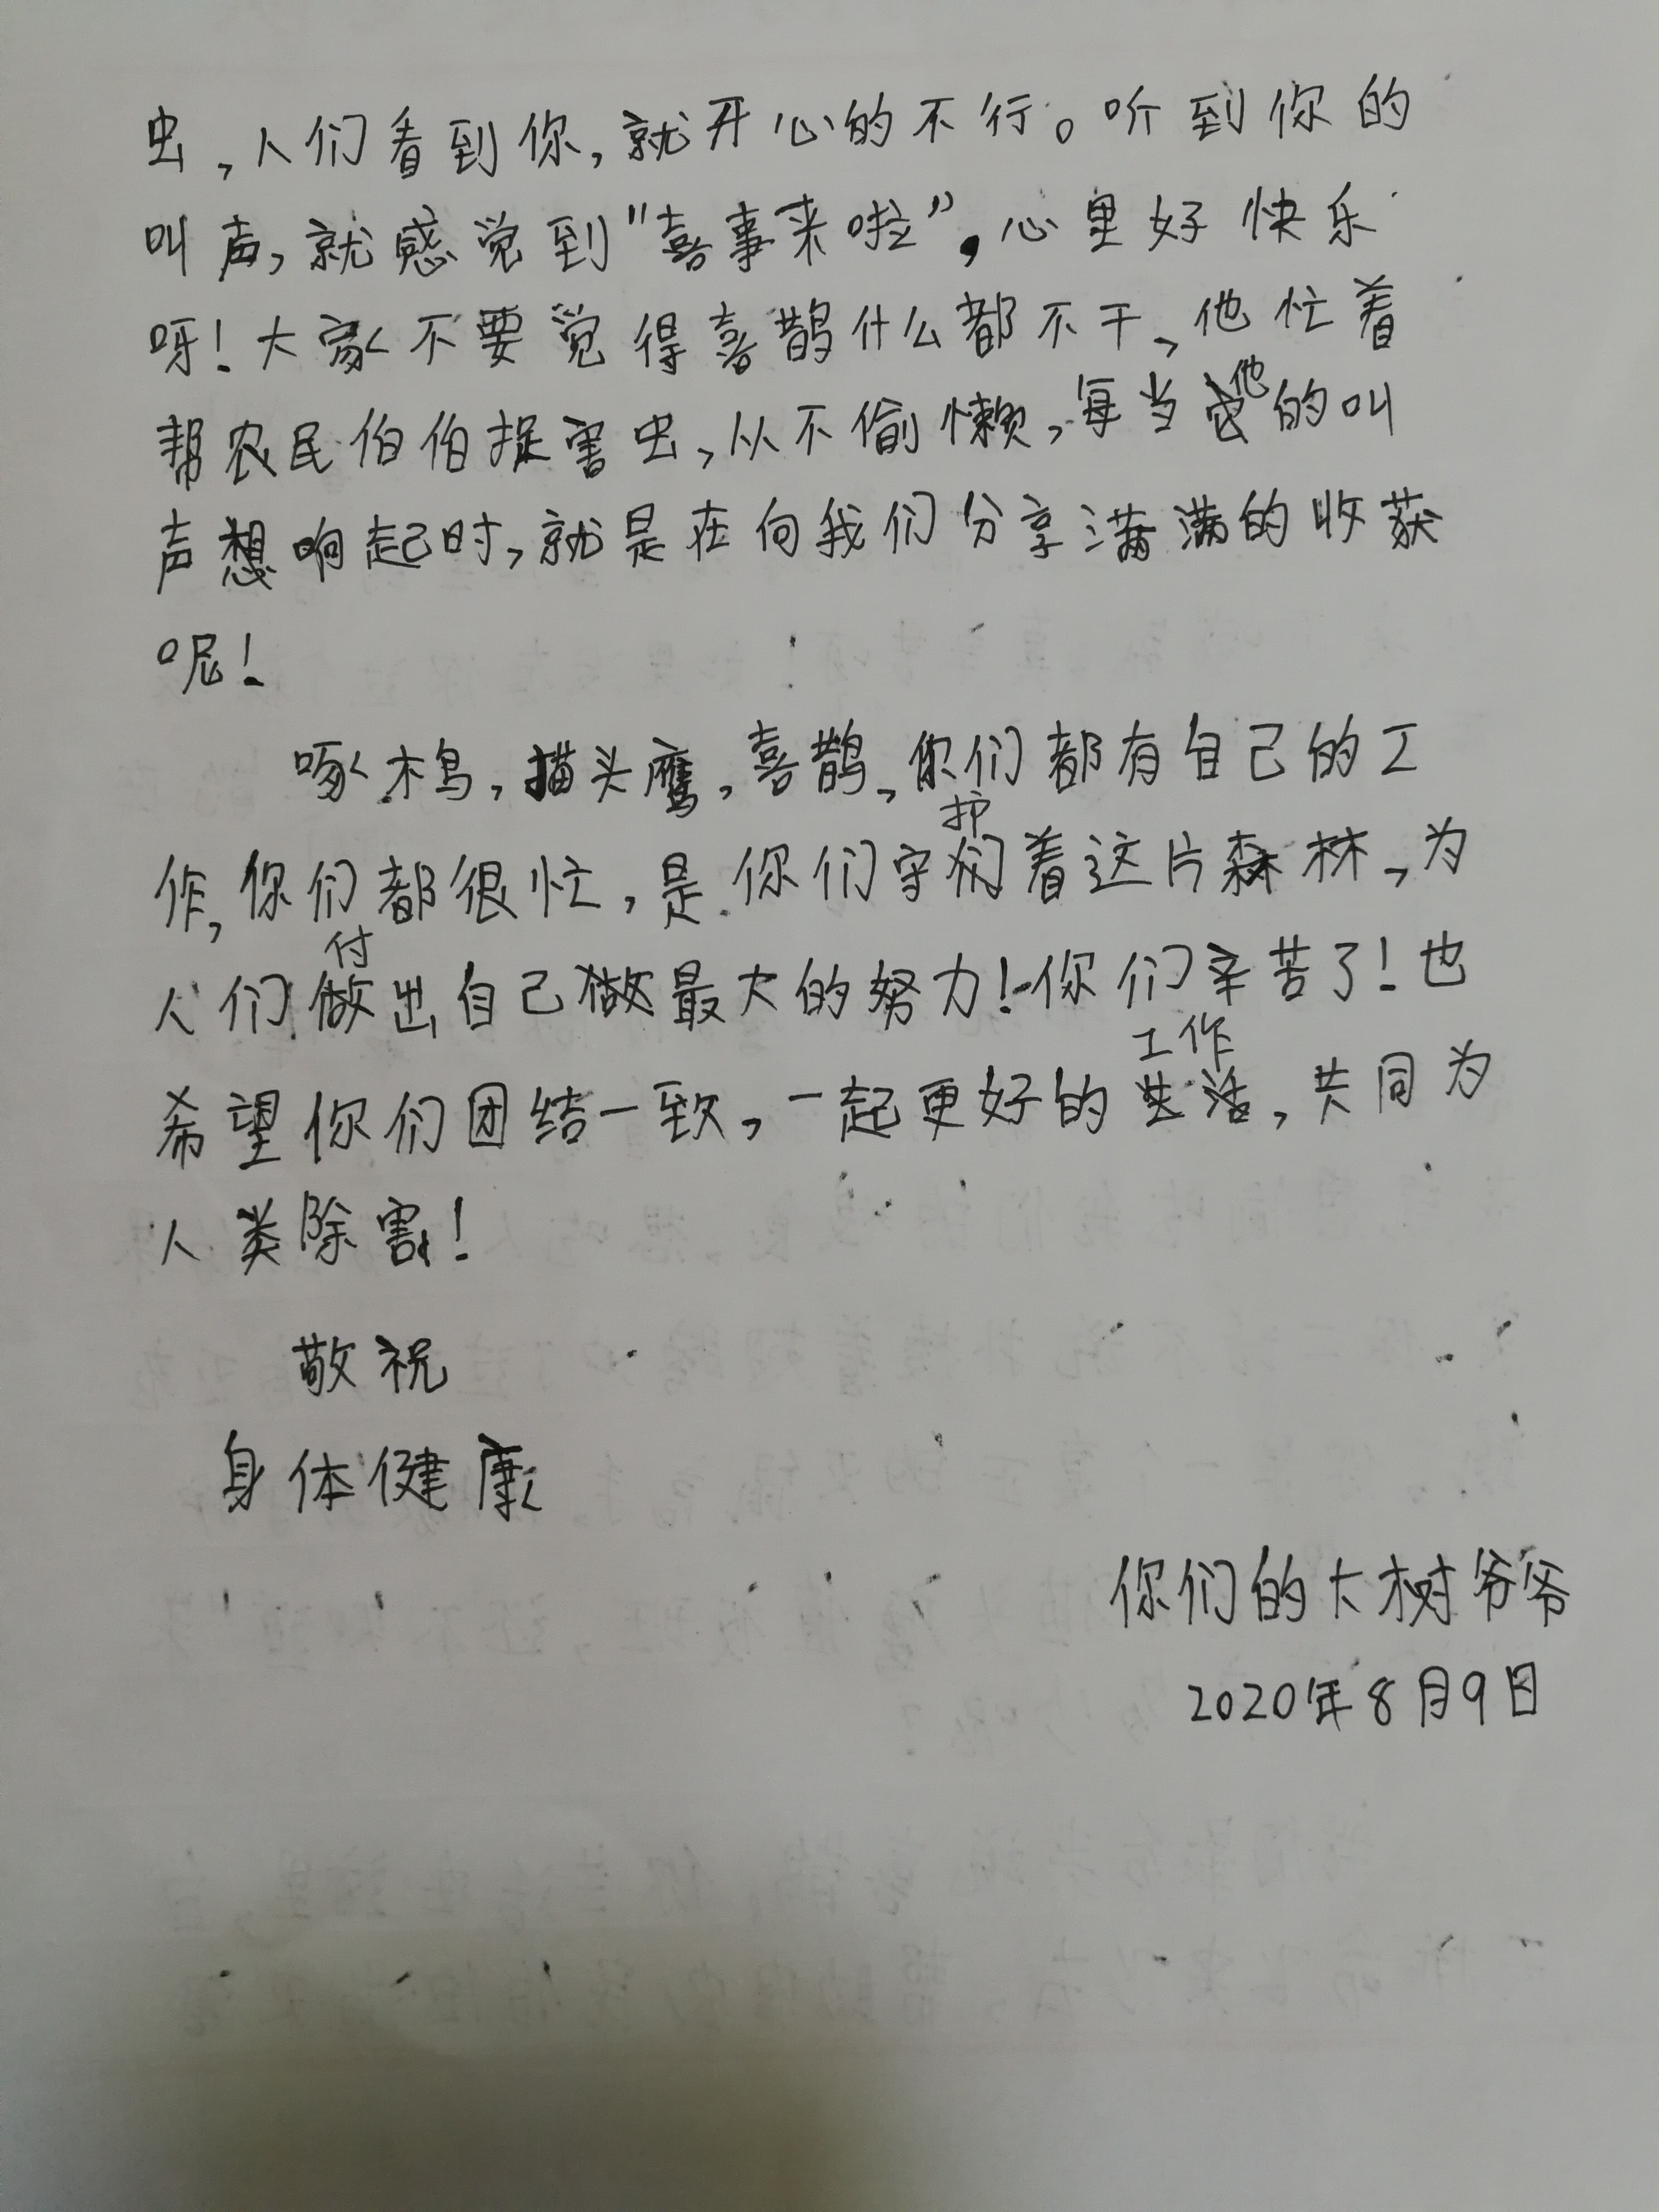 虫,人们看到你,就开心的不行。听到你的
叫声,就感觉到"喜事来啦",心里好快乐
呀!大家不要觉得喜鹊什么都不干,他忙着
帮农民伯伯捉害虫,从不偷懒,每当他的叫
声想响起时,就是在向我们分享满满的收获
呢!
啄木鸟,猫头鹰,喜鹊,你们都有自己的工
作,你们都很忙,是你们守护着这片森林,为
人们付出自己做最大的努力!你们辛苦了!也
希望你们团结一致,一起更好的工作,共同为
人类除害!
敬祝
身体健康
你们的大树爷爷
2020年8月9日